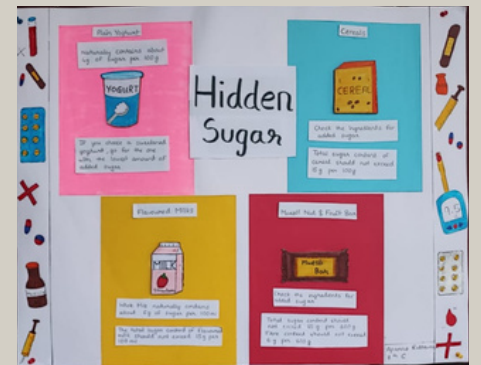 Plain Yoghurt
naturally contains about
of sugar per 100g
YOGURT
If you choose a sweetened
yoghurt, go for the one
with the lowest amount of
added sugar
Hidden
Sugar
Cereals
CEREAL
Check the ingredients for
added sugar
Total sugar content of
cereal should not exceed
15g per 100g
Flavoured Milks
MILK
naturally contains
about 5g of sugar per 100ml
The total sugar content of flavoured
milk should not exceed
100ml
Muesli Nut & Fruit Bar
Muesli
Bar
Check the ingredients for
added sugar
Total sugar content should
not exceed 10g per 100g
Fibre content should not exceed
per 100g
7.5